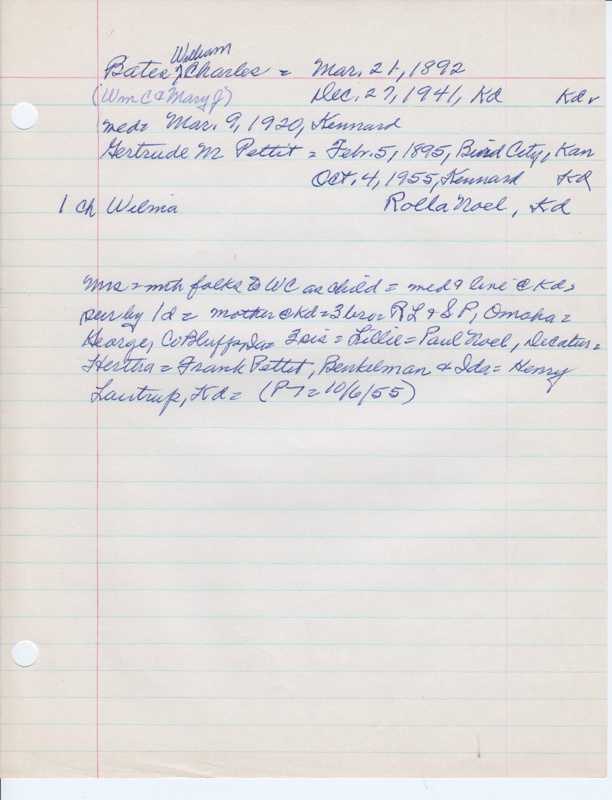 William
Bates, Charles = Mar. 21, 1892
(Wm C & Mary J) Dec. 27, 1941, Kd Kd
med = Mar. 9, 1920, Kennard
Gertrude M Pettit = Febr. 5, 1895, Bird City, Kan
Oct. 4, 1955, Kennard Kd
1 ch Wilma Rolla Noel, Kd
Mrs = with folks to WC as child = med & live @ Kd =
sur by 1 d = mother @ Kd = 3 bro = R L & S P, Omaha =
George, Co Bluffs, Ia = 3 sis = Lillie = Paul Noel, Decatur =
Hertha = Frank Pettit, Benkelman & Ida = Henry
Lautrup, Kd = (P-T = 10/6/55)